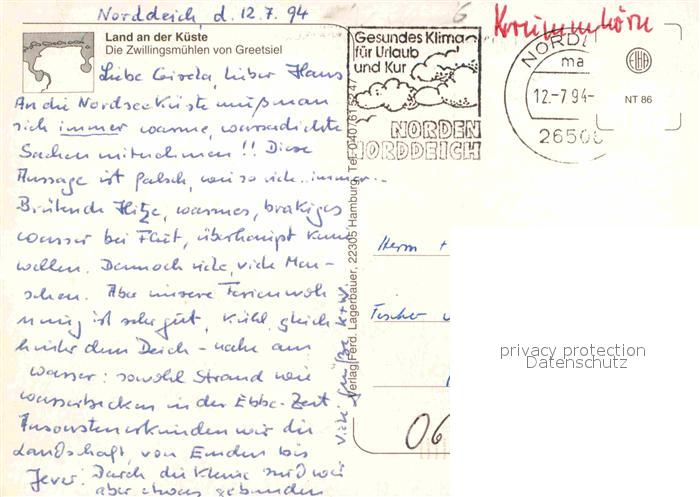 Norddeich, d. 12.7.94
Krummhörn
Land an der Küste
Die Zwillingsmühlen von Greetsiel
Liebe Gisela, lieber Hans
An die Nordseeküste muß man
sich immer warme, wasserdichte
Sachen mitnehmen!! Diese
Aussage ist falsch, wie so vieles immer...
Brütende Hitze, warmes, brakiges
Wasser bei Flut, überhaupt keine
Wellen. Dennoch viele, viele Men-
schen. Aber unsere Ferienwoh-
nung ist sehr gut, kühl, gleich
hinter dem Deich - nahe am
Wasser: sowohl Strand wie
Wasserbecken in der Ebbe-Zeit.
Ansonsten erkunden wir die
Landschaft, von Emden bis
Jever. Durch die Kleine sind wir
aber etwas gebunden
Viele Grüße K+W.
Verlag Ferd. Lagerbauer, 22305 Hamburg, Tel. 040/7 61 52 47
Gesundes Klima
für Urlaub
und Kur
NORDEN
NORDDEICH
NORD
ma
12.-7.94-
26506
NT 86
Herrn +
Fischer
06
privacy protection
Datenschutz